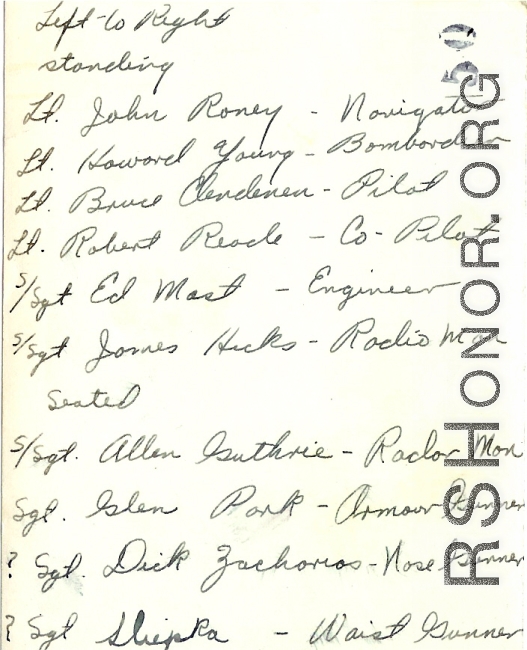 Left to Right
standing
Lt. John Roney - Navigator
Lt. Howard Young - Bombardier
Lt. Bruce Clendenen - Pilot
Lt. Robert Reade - Co-Pilot
S/Sgt Ed Mast - Engineer
S/Sgt James Hicks - Radio Man
seated
S/Sgt. Allen Guthrie - Radar Man
Sgt. Glen Park - Armour Gunner
? Sgt. Dick Zacharias - Nose Gunner
? Sgt Sliepka - Waist Gunner
50
RSHONOR.ORG